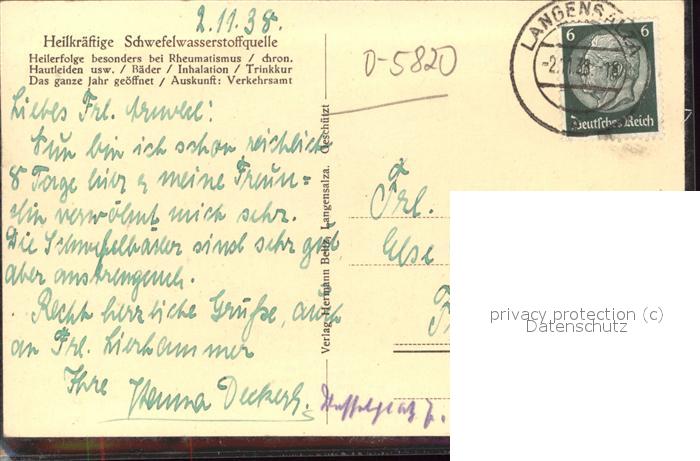 2.11.38.
Heilkräftige Schwefelwasserstoffquelle
Heilerfolge besonders bei Rheumatismus / chron.
Hautleiden usw. / Bäder / Inhalation / Trinkkur
Das ganze Jahr geöffnet / Auskunft: Verkehrsamt
D-5820
LANGENSALZA
-2.11.38.-18
6 6
Deutsches Reich
Liebes Frl.
Nun bin ich schon reichlich
8 Tage hier & meine Freun=
din verwöhnt mich sehr.
Die Schwefelbäder sind sehr gut,
aber anstrengend.
Recht herzliche Grüße, auch
an Frl.
Ihre Hanna
Verlag Hermann Beltz, Langensalza. Geschützt
Frl.
Else
F
privacy protection (c)
Datenschutz